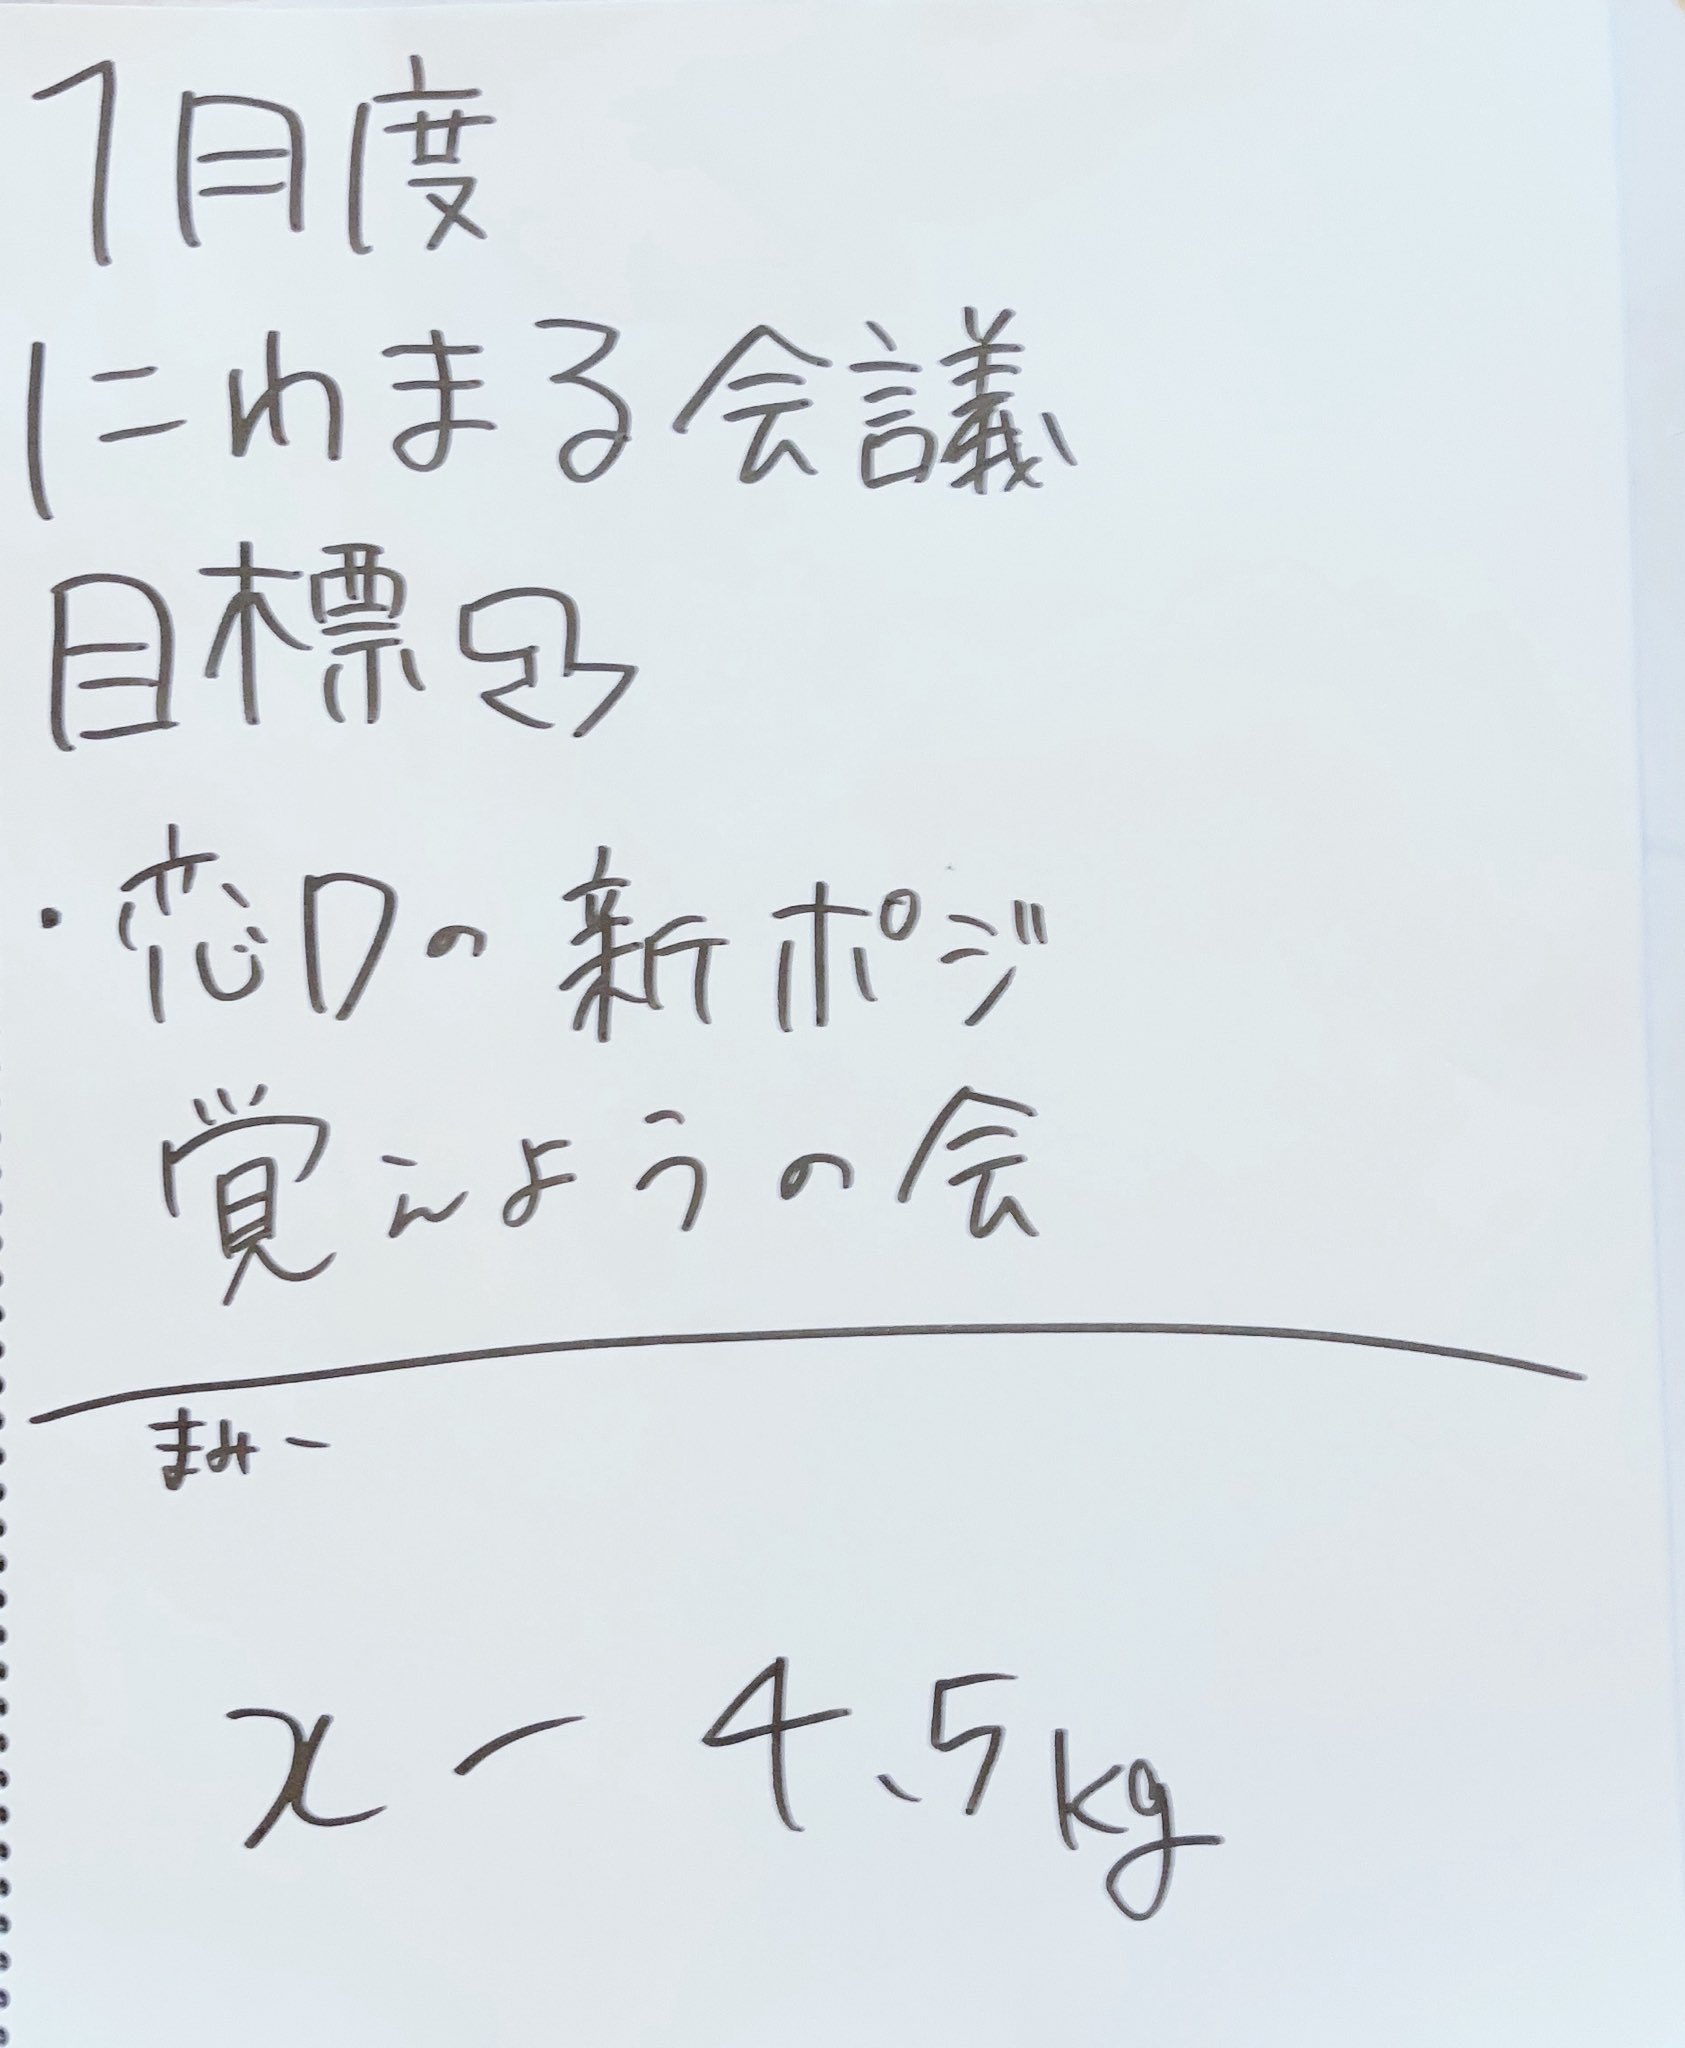 1月度
にわまる会議
目標
・恋Dの新ポジ
覚えようの会
まみー
x − 4.5kg